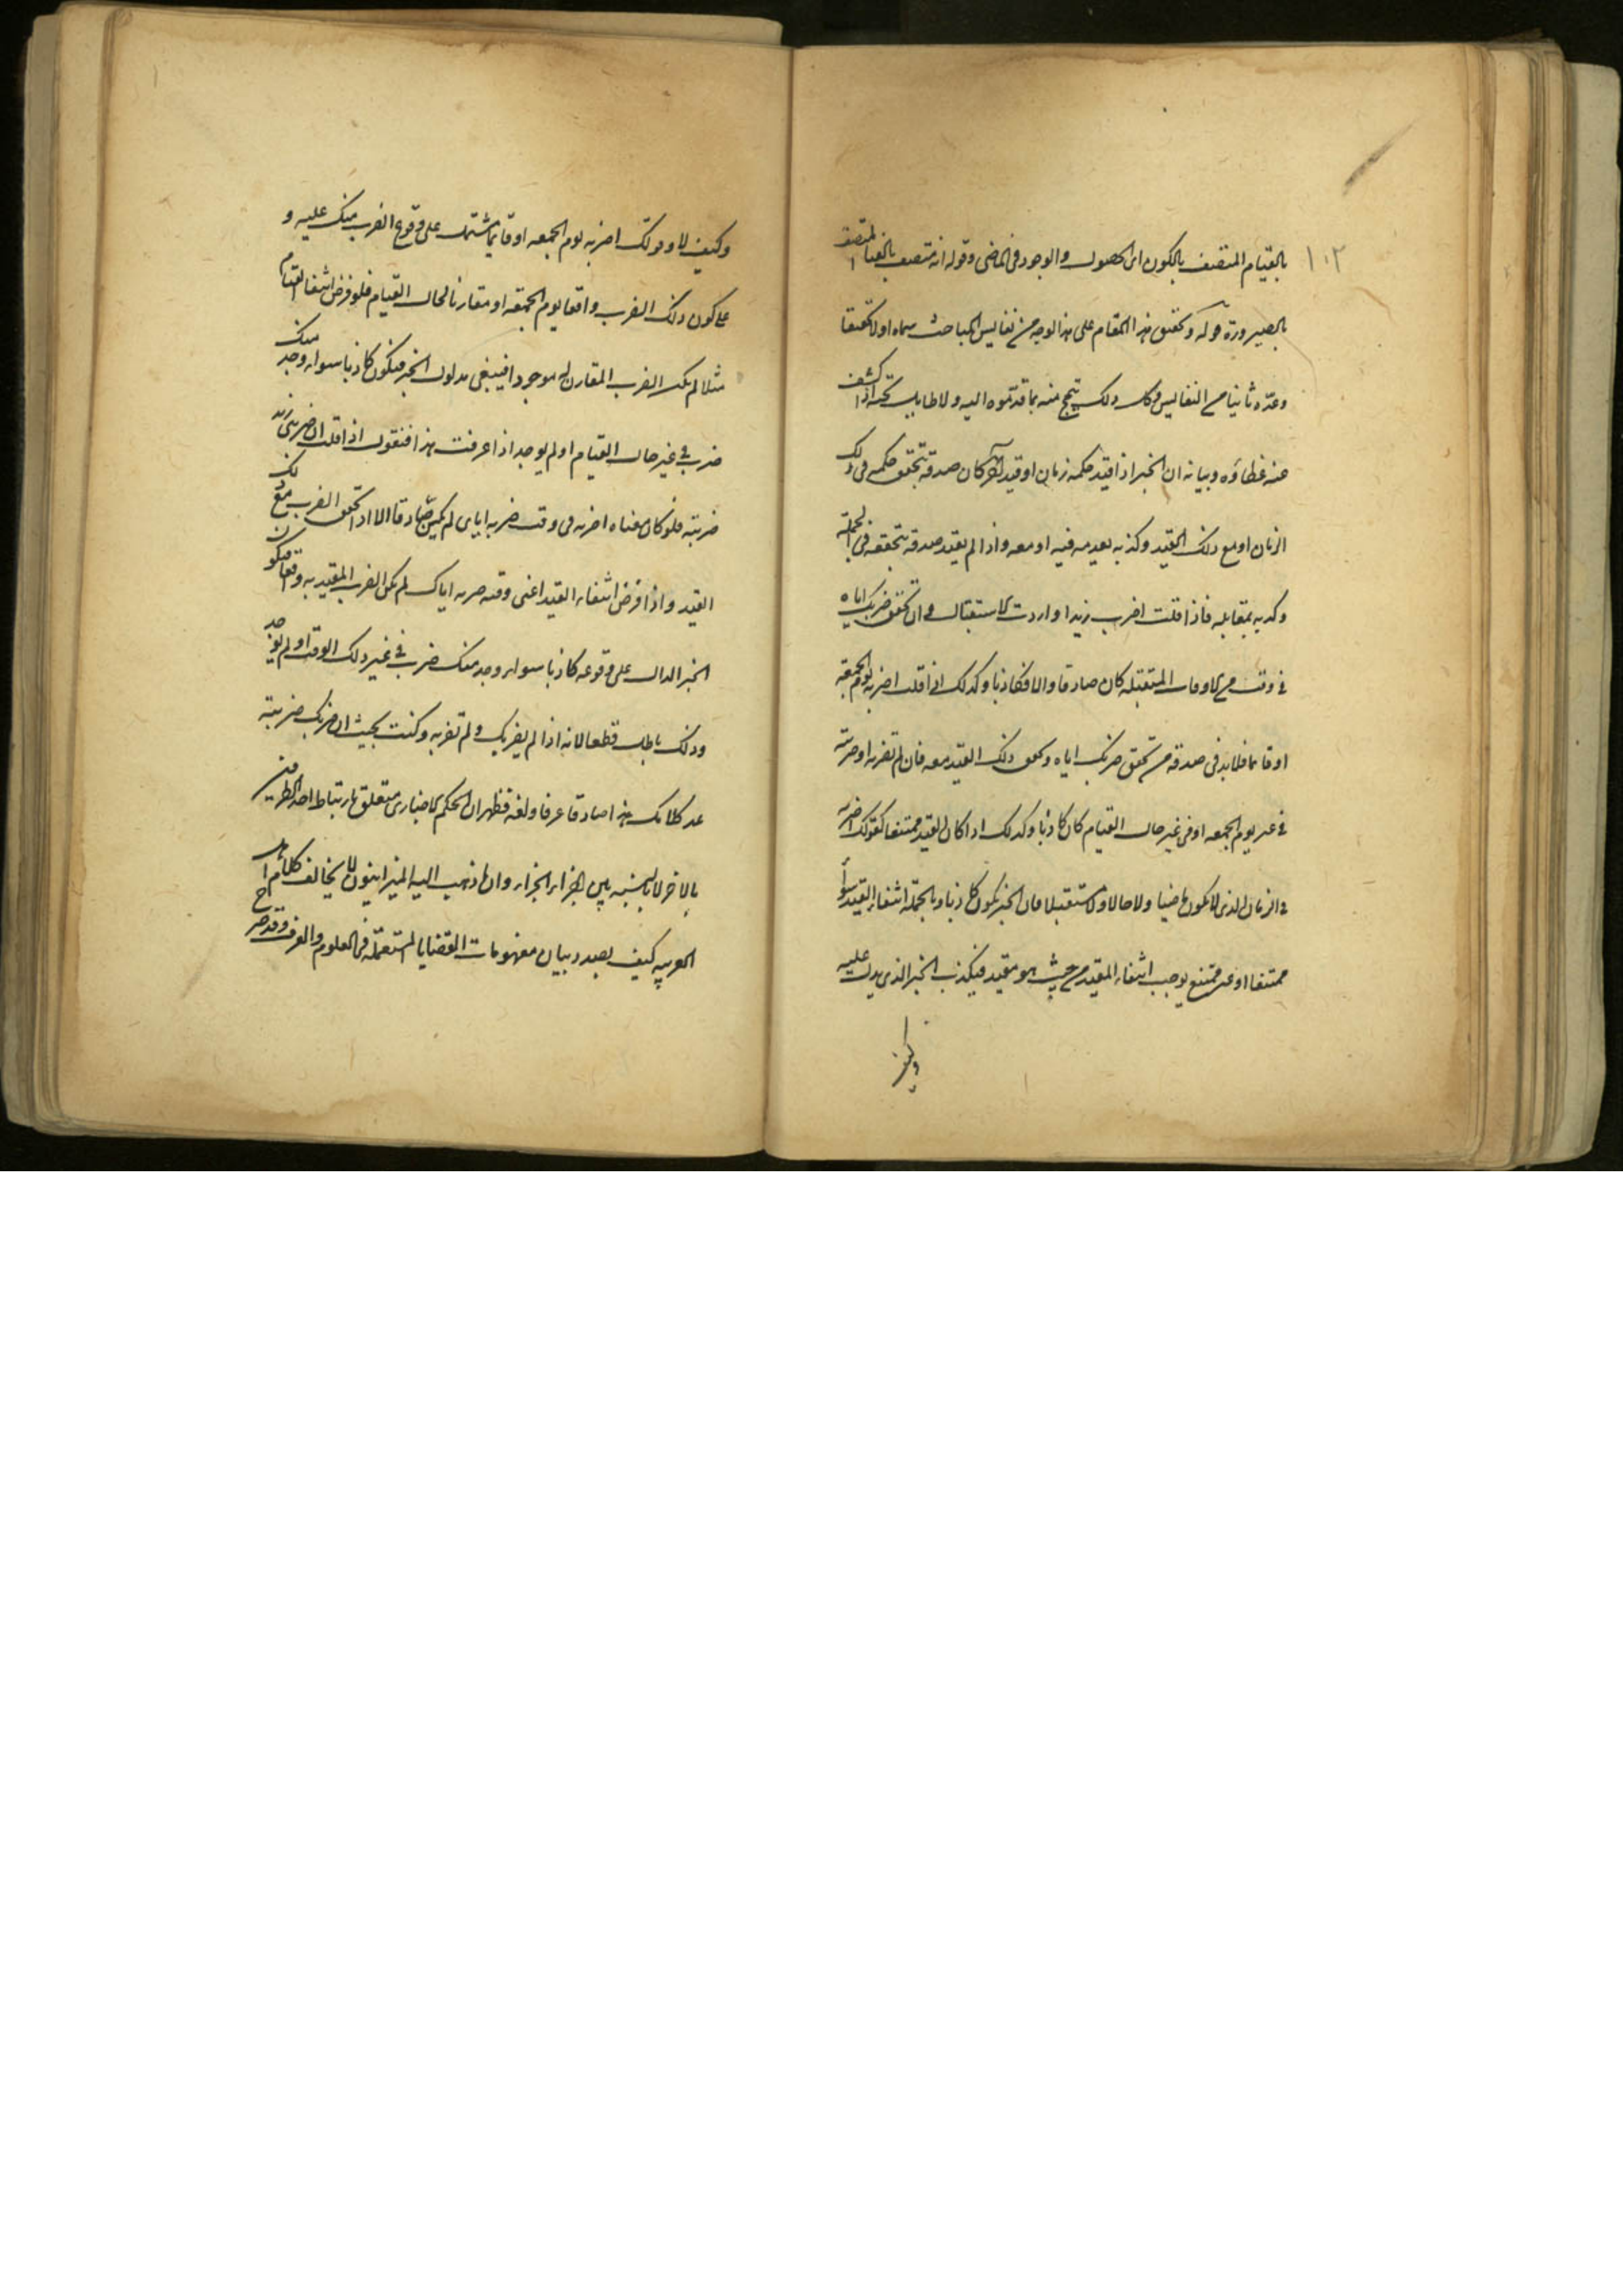 ١٠٢
بالقيام المتصف بالكون اى الحصول والوجود فى الماضى وقوله انه متصف بالغنا المتصف
بالصيرورة قوله وتحقيق هذا المقام على هذا الوجه من نفايس المباحث سماه اولا تحقيقا
وعده ثانيا من النفايس وكل ذلك تبجح منه بما قد تموه اليه ولا طايل تحته اذا كشف
عنه غطاؤه وبيانه ان الخبر اذا قيد حكمه بزمان او قيد آخر كان صدقه بتحقق حكمه فى ذلك
الزمان او مع ذلك القيد وكذبه بعدمه فيه او معه واذا لم يقيد صدقه بتحققه فى الجملة
وكذبه بمقابله فاذا قلت اضرب زيدا واردت الاستقبال فان تحقق ضربك اياه
فى وقت من الاوقات المستقبله كان صادقا والا فكاذبا وكذلك اذا قلت اضربه يوم الجمعة
او قائما فلا بد فى صدقه من تحقق ضربك اياه وتحقق ذلك القيد معه فان لم تضربه او ضربته
فى غير يوم الجمعه او فى غير حال القيام كان كاذبا وكذلك اذا كان القيد ممتنعا كقولك اضربه
فى الزمان الذى لا يكون ماضيا ولا حالا ولا مستقبلا فان الخبر يكون كاذبا وبالجملة انتفاء القيد سواء
ممتنعا او غير ممتنع يوجب انتفاء المقيد من حيث هو مقيد فيكذب الخبر الذى يدل عليه
وكيف
وكيف لا وقولك اضربه يوم الجمعه او قائما مشتمل على وقوع الضرب منك عليه و
على كون ذلك الضرب واقعا يوم الجمعه او مقارنا لحال القيام فلو فرض انتفاء القيام
مثلا لم يكن الضرب المقارن له موجودا فينتفى مدلول الخبر فيكون كاذبا سواء وجد منك
ضرب فى غير حال القيام او لم يوجد اذا عرفت هذا فنقول اذا قلت ان ضربنى زيد
ضربته فلو كان معناه اضربه فى وقت ضربه اياى لم يكن صادقا الا اذا تحقق الضرب مع ذلك
القيد واذا فرض انتفاء القيد اعنى وقت ضربه اياك لم يكن الضرب المقيد به واقعا فيكون
الخبر الدال على وقوعه كاذبا سواء وجد منك ضرب فى غير ذلك الوقت او لم يوجد
وذلك باطل قطعا لانه اذا لم يضربك ولم تضربه وكنت بحيث ان ضربك ضربته
عد كلامك هذا صادقا عرفا ولغة فظهر ان الحكم الاخبارى متعلق بارتباط احد الطرفين
بالاخر لا بالنسبه بين اجزاء الجزاء وان ما ذهب اليه الميزانيون لا يخالف كلام اهل
العربيه كيف بصدد بيان مفهومات القضايا المستعملة فى العلوم والعرف وقد صرح